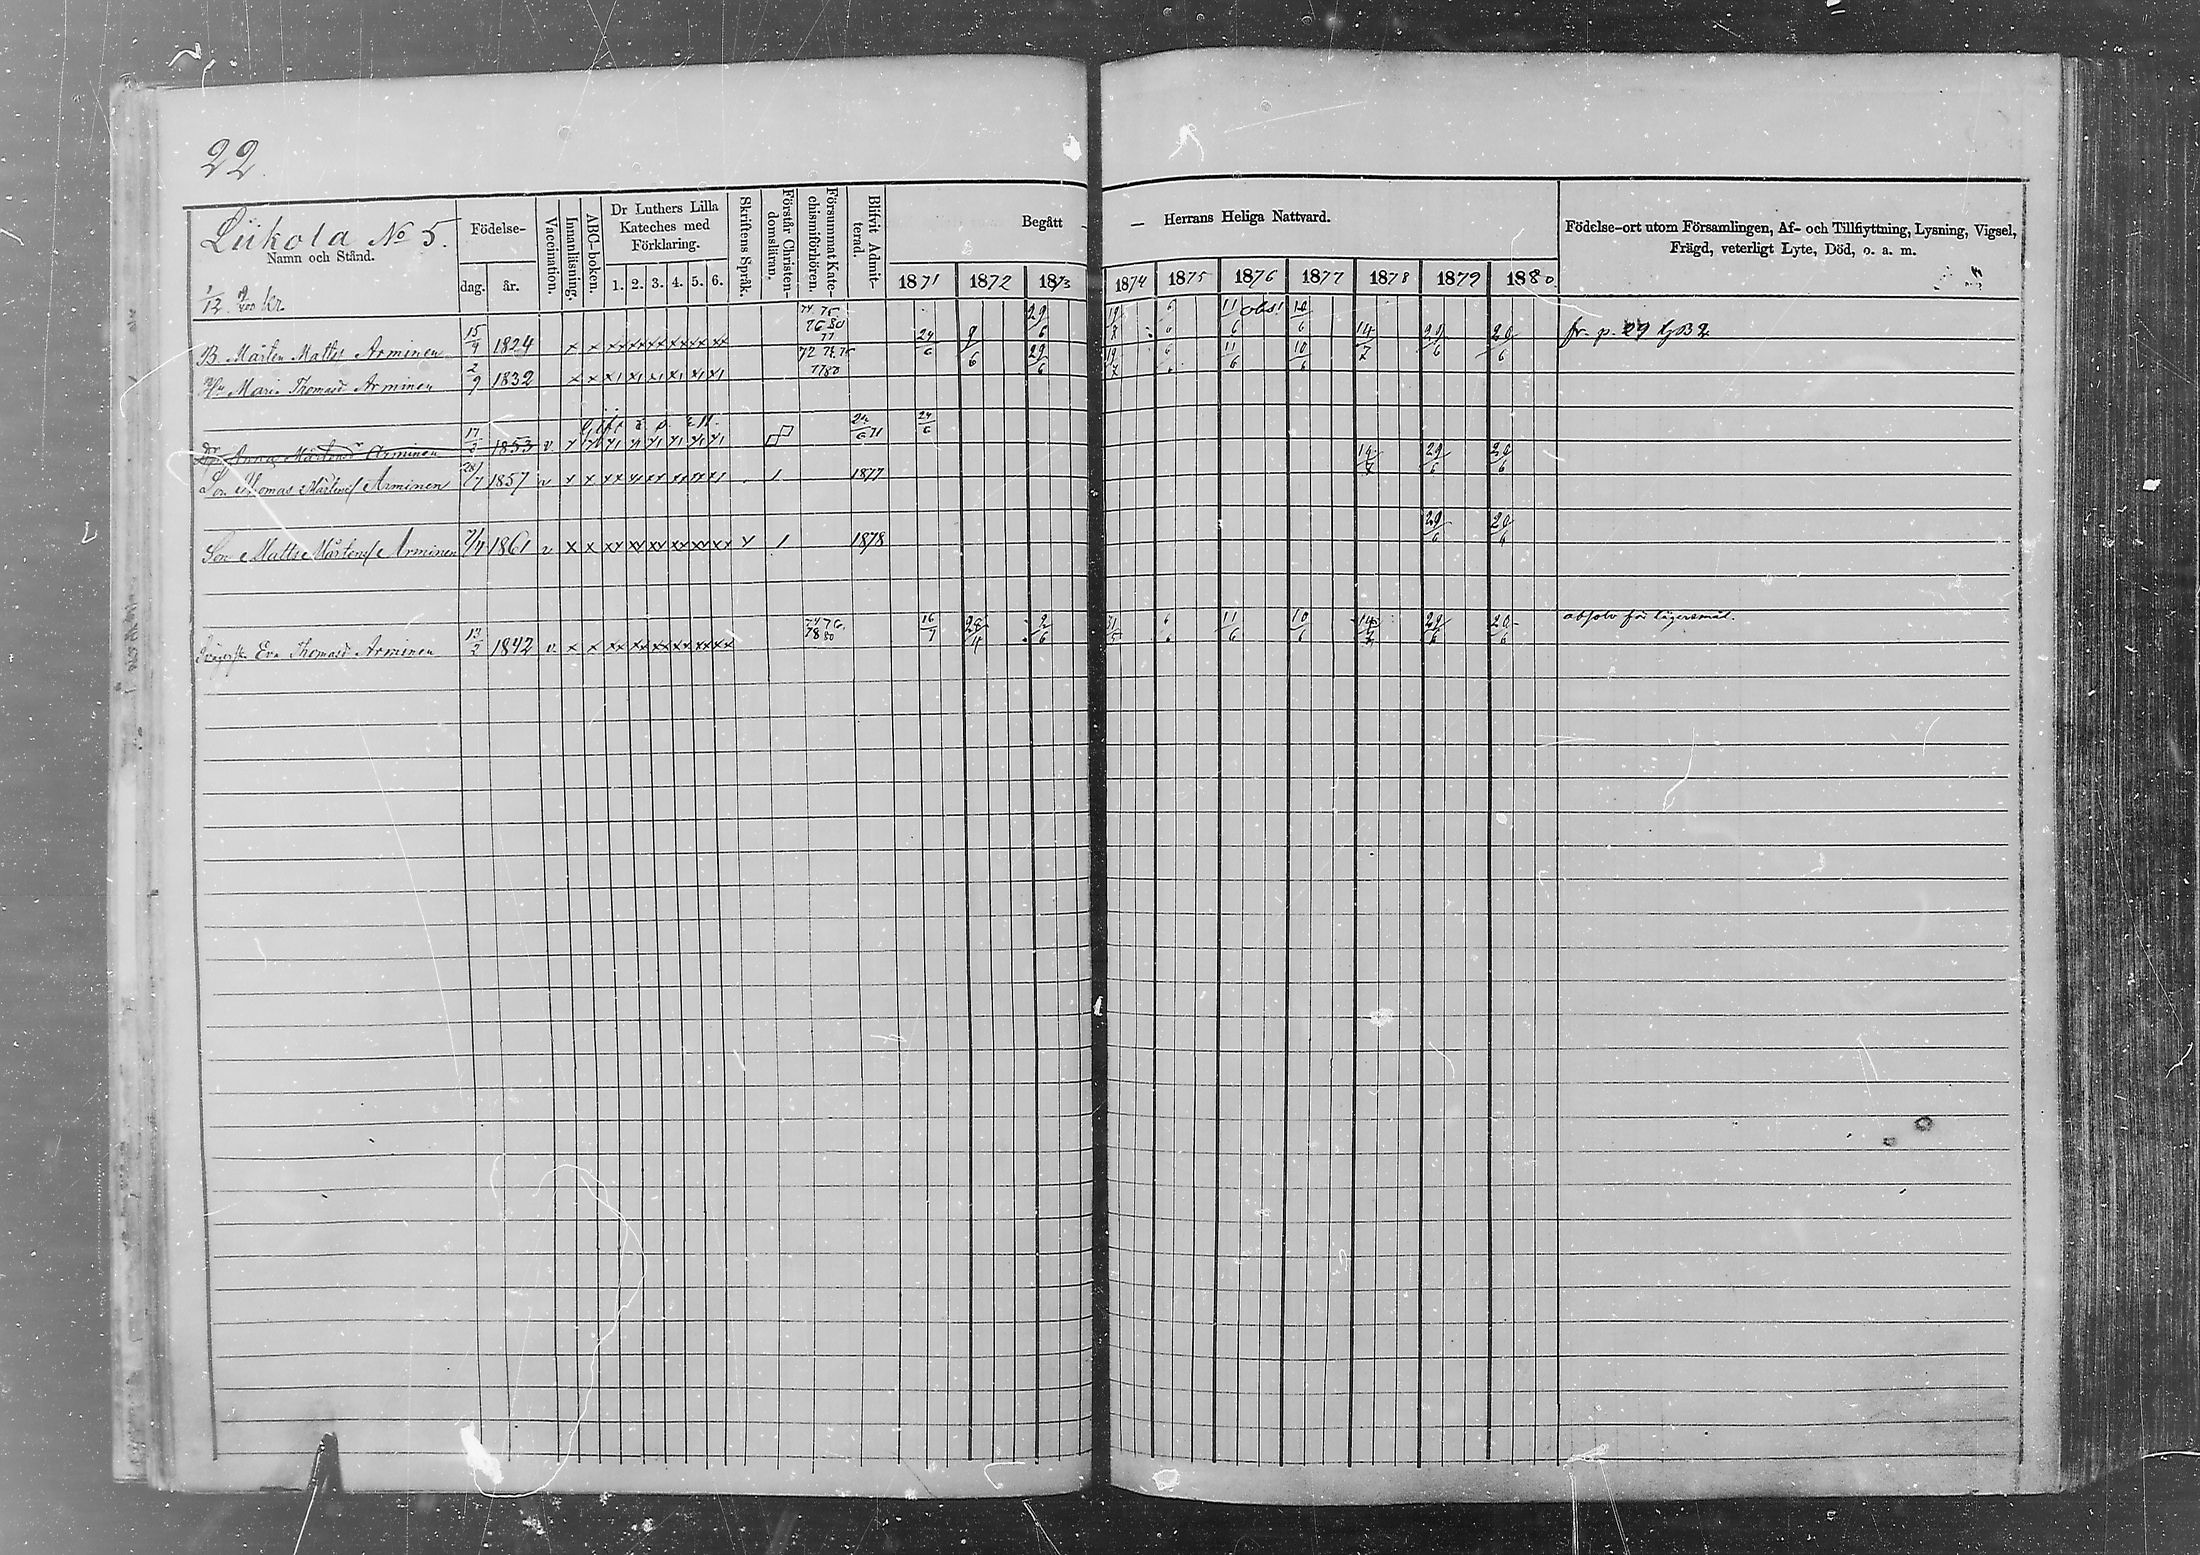 22.
Liikola No 5.
Namn och Stånd.
Födelse-
dag.
år.
Vaccination.
Innanläsning.
ABC-boken.
Dr Luthers Lilla Kateches med Förklaring.
1. 2. 3. 4. 5. 6.
Skriftens Språk.
Förstår Christendomsläran.
Försummat Katechismiförhören.
Blifvit Admitterad.
Begått — Herrans Heliga Nattvard.
1871 1872 1873 1874 1875 1876 1877 1878 1879 1880
Födelse-ort utom Församlingen, Af- och Tillflyttning, Lysning, Vigsel,
Frägd, veterligt Lyte, Död, o. a. m.
B. Mårten Matts Arminen 15/9 1824 x x xx xx xx xx xx xx 24/6 9/6 29/6 19/7 6/6 11/6 obs! 10/6 14/7 29/6 20/6 fr. p. 29 GB 2
Maria Thomasd Arminen 2/9 1832 x x 29/6 19/7 6/6 11/6 10/6
Anna Mårtensd Arminen 17/2 1853 v. 24/6 71 24/6
Son Thomas Mårtens Arminen 1857 v 1 1877 14/7 29/6 20/6
Son Matts Mårtens Arminen 2/4 1861 v x x xx xx xx xx xx xx 1 1878 29/6 20/6
Eva Thomasd Arminen 1842 v. x x xx xx xx xx xx xx 74 76. 78 80 16/7 28/4 2/6 31/5 6/6 11/6 10/6 14/7 29/6 20/6 absolv för lägersmål.